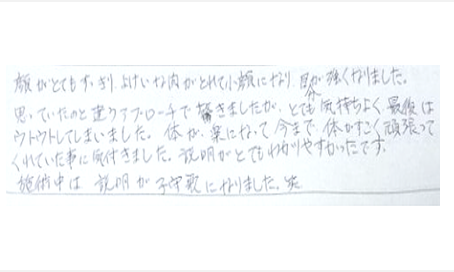 顔がとてもすっきり よけいな肉がとれて小顔になり、目が強くなりました。
思っていたのと違うアプローチで驚きましたが、とても気持ちよく最後は
ウトウトしてしまいました。体が、楽になって今まで、体がすごく頑張って
くれていた事に気付きました。説明がとてもわかりやすかったです。
施術中は 説明が子守歌になりました。笑